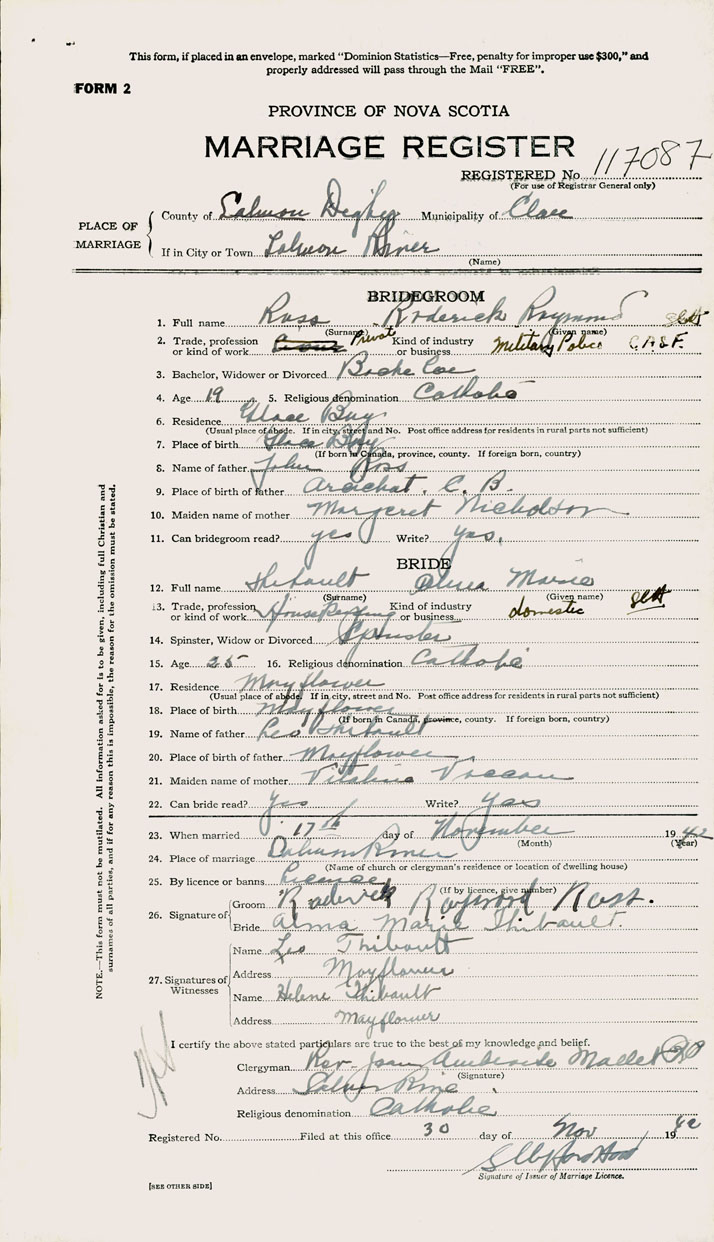 This form, if placed in an envelope, marked "Dominion Statistics—Free, penalty for improper use $300," and
properly addressed will pass through the Mail "FREE".
FORM 2
PROVINCE OF NOVA SCOTIA
MARRIAGE REGISTER
REGISTERED No. 117087
(For use of Registrar General only)
PLACE OF MARRIAGE
County of Salmon Digby Municipality of Clare
If in City or Town Salmon River
(Name)
BRIDEGROOM
1. Full name Ross Roderick Raymond
(Surname) (Given name)
2. Trade, profession or kind of work Private Kind of industry or business Military Police C.A.S.F.
3. Bachelor, Widower or Divorced
4. Age 19 5. Religious denomination Catholic
6. Residence Glace Bay
(Usual place of abode. If in city, street and No. Post office address for residents in rural parts not sufficient)
7. Place of birth Glace Bay
(If born in Canada, province, county. If foreign born, country)
8. Name of father John Ross
9. Place of birth of father Arachat, C. B.
10. Maiden name of mother Margeret Nicholson
11. Can bridegroom read? yes Write? yes.
BRIDE
12. Full name Thibault Alma Marie
(Surname) (Given name)
13. Trade, profession or kind of work House Keeping Kind of industry or business domestic
14. Spinster, Widow or Divorced Spinster
15. Age 25 16. Religious denomination Catholic
17. Residence Mayflower
(Usual place of abode. If in city, street and No. Post office address for residents in rural parts not sufficient)
18. Place of birth Mayflower
(If born in Canada, province, county. If foreign born, country)
19. Name of father Leo Thibault
20. Place of birth of father Mayflower
21. Maiden name of mother
22. Can bride read? yes Write? yes
23. When married 17th day of November 1942
(Month) (Year)
24. Place of marriage Salmon River
(Name of church or clergyman's residence or location of dwelling house)
25. By licence or banns Licence
(If by licence, give number)
26. Signature of
Groom Roderick Raymond Ross.
Bride Alma Marie Thibault.
27. Signatures of Witnesses
Name Leo Thibault
Address Mayflower
Name Helene Thibault
Address Mayflower
I certify the above stated particulars are true to the best of my knowledge and belief.
Clergyman Rev. Jean Mallet
(Signature)
Address Salmon River
Religious denomination Catholic
Registered No. Filed at this office 30 day of Nov 1942
Signature of Issuer of Marriage Licence.
[SEE OTHER SIDE]
NOTE.—This form must not be mutilated. All information asked for is to be given, including full Christian and
surnames of all parties, and if for any reason this is impossible, the reason for the omission must be stated.